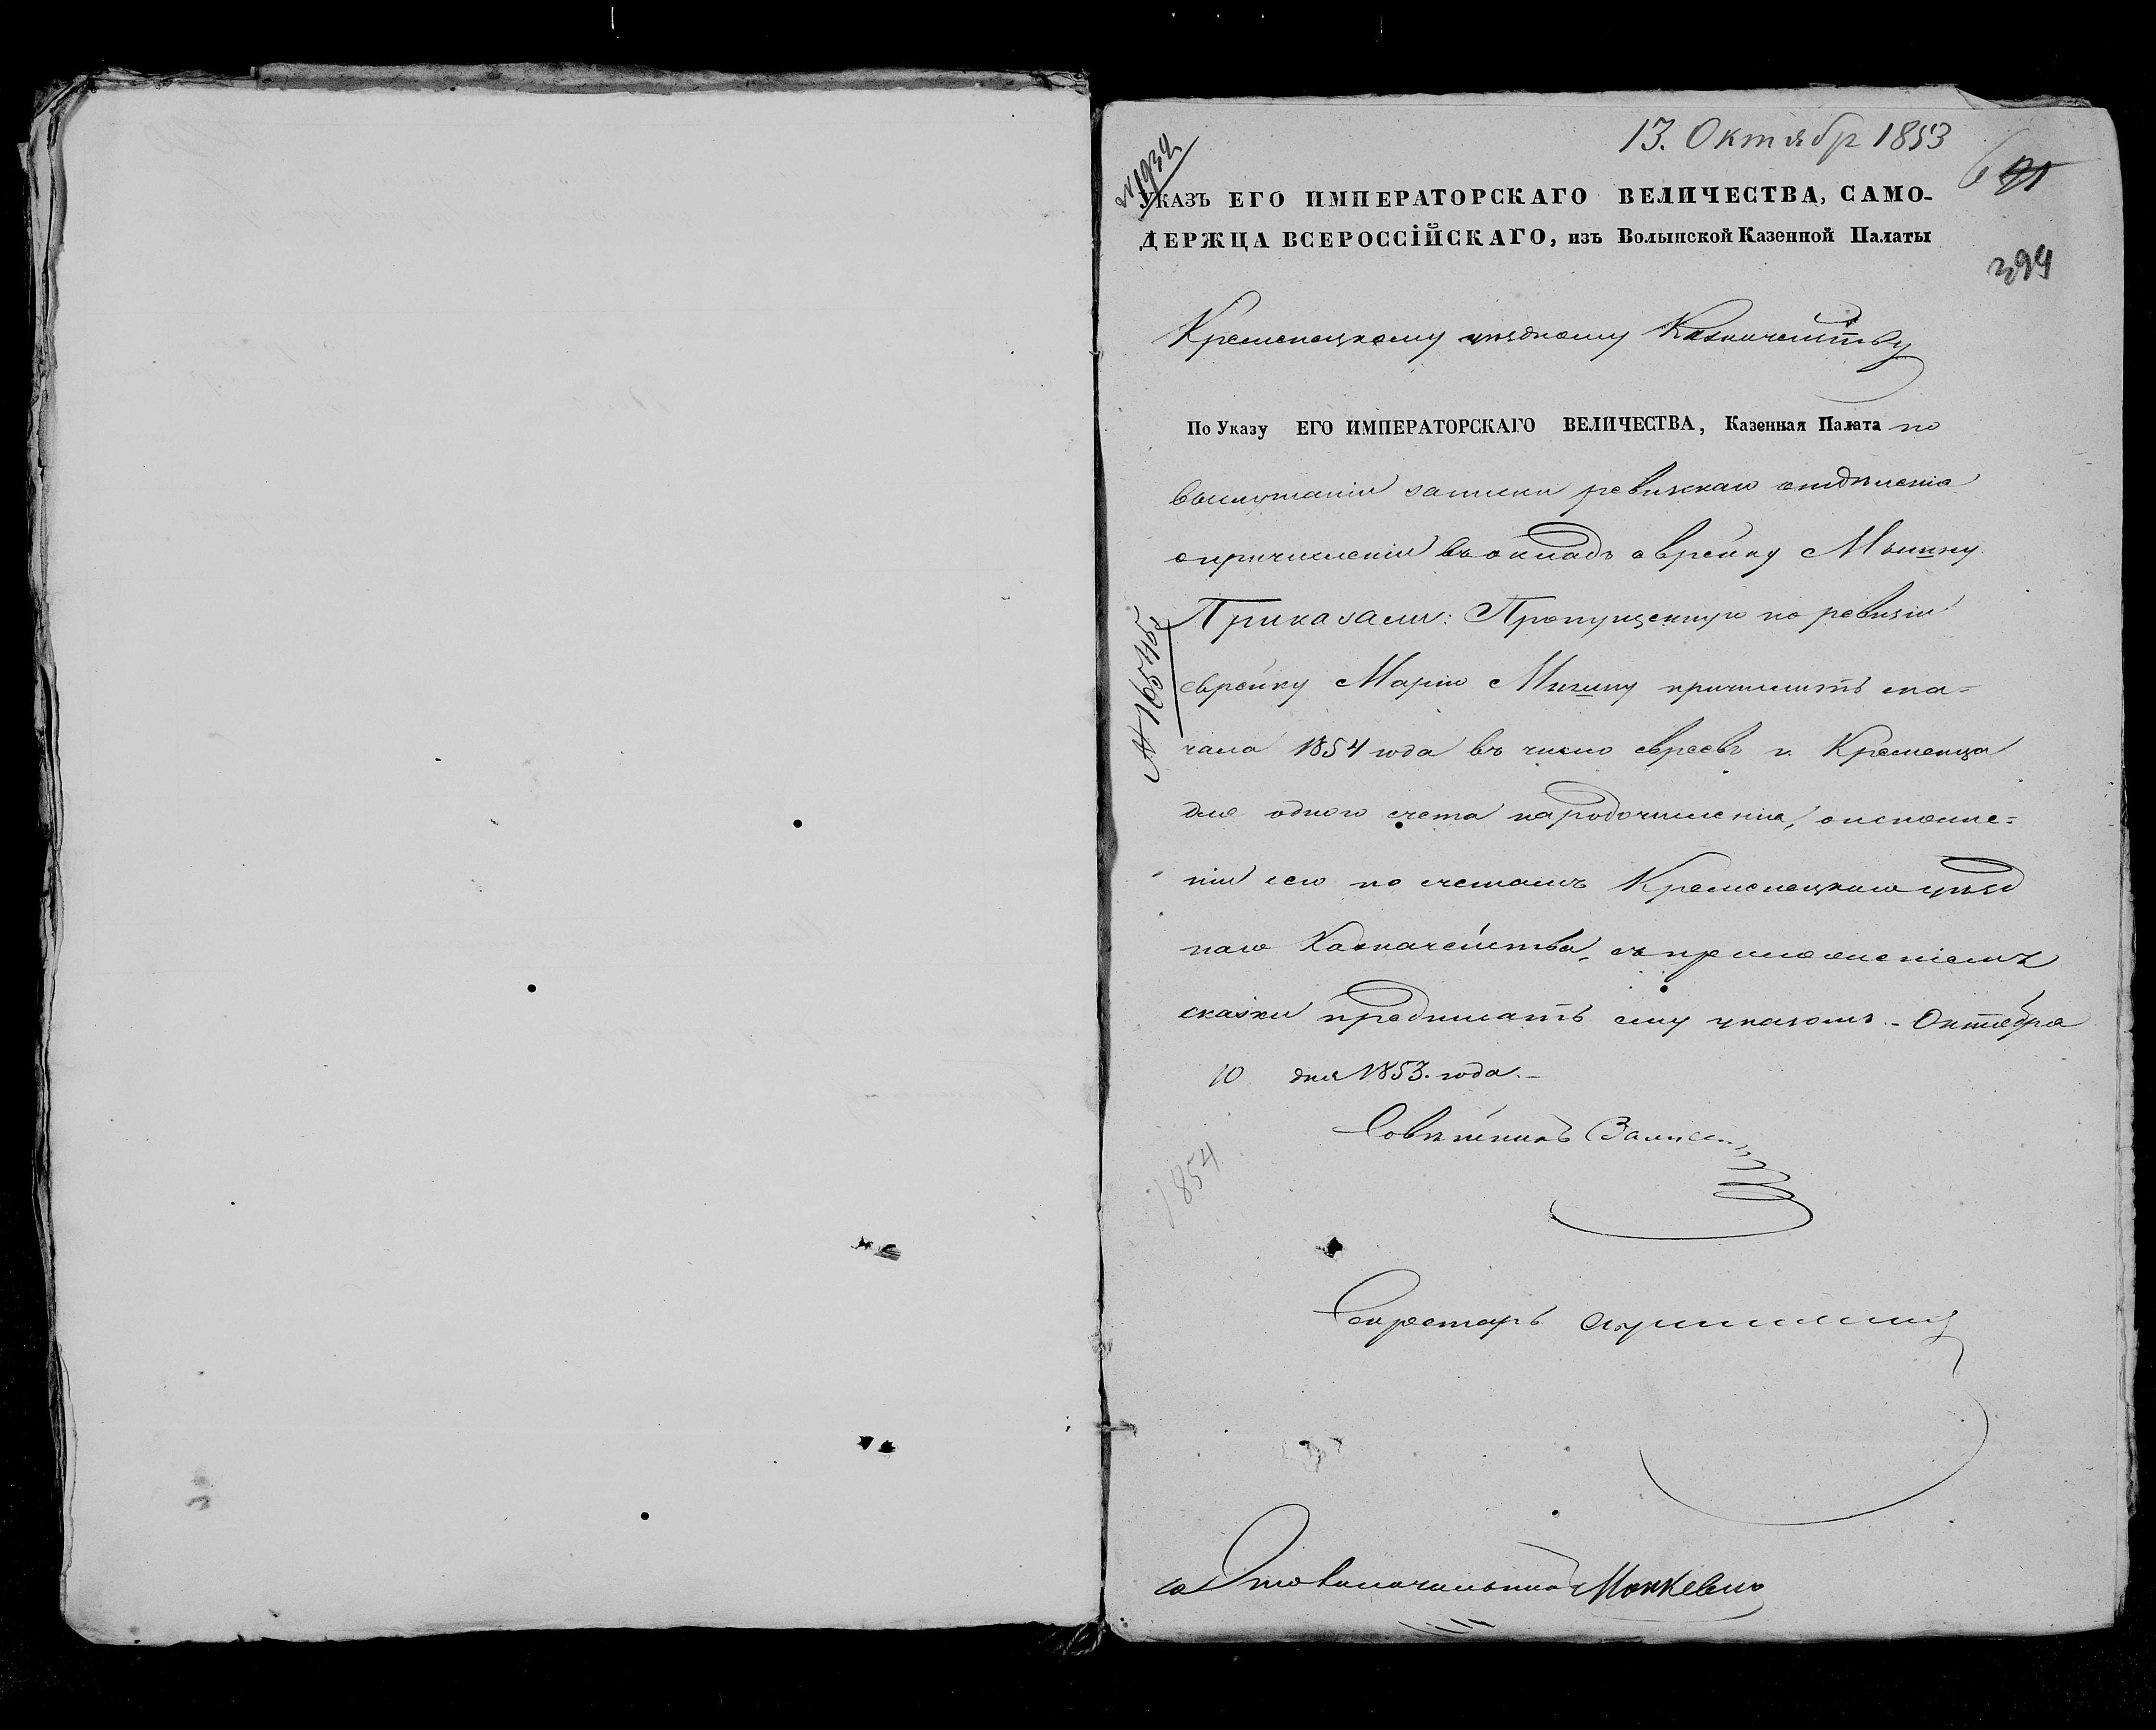 13. Октябр 1853
№ 1932
УКАЗЪ ЕГО ИМПЕРАТОРСКАГО ВЕЛИЧЕСТВА, САМО-
ДЕРЖЦА ВСЕРОССІЙСКАГО, изъ Волынской Казенной Палаты
394
Кременецкому уѣздному Казначейству
По Указу ЕГО ИМПЕРАТОРСКАГО ВЕЛИЧЕСТВА, Казенная Палата по
выслушаніи записки ревизскаго отдѣленія
о причисленіи въ окладъ еврейку
Приказали: Пропущенную по ревизіи
еврейку Марію причислить съ на-
№ 16545
чала 1854 года въ число евреевъ г. Кременца
для одного счета народочисленія, о исполне-
ніи сего по счетамъ Кременецкаго уѣзд
наго Казначейства, съ приложеніемъ
сказки предписать ему указомъ.- Октября
10 дня 1853. года.-
Совѣтникъ
1854
Секретарь
Столоначальникъ